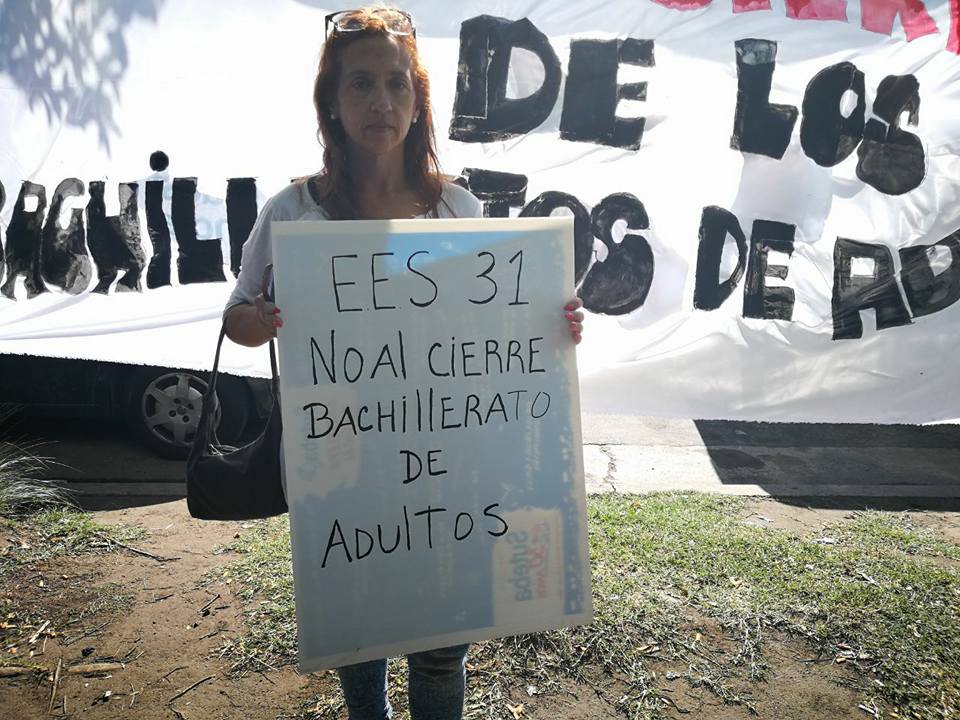 DE LOS
BACHILL TOS DE AD
EES 31
NO Al CiERRE
BACHillERATO
DE
ADULTOS
Suteba